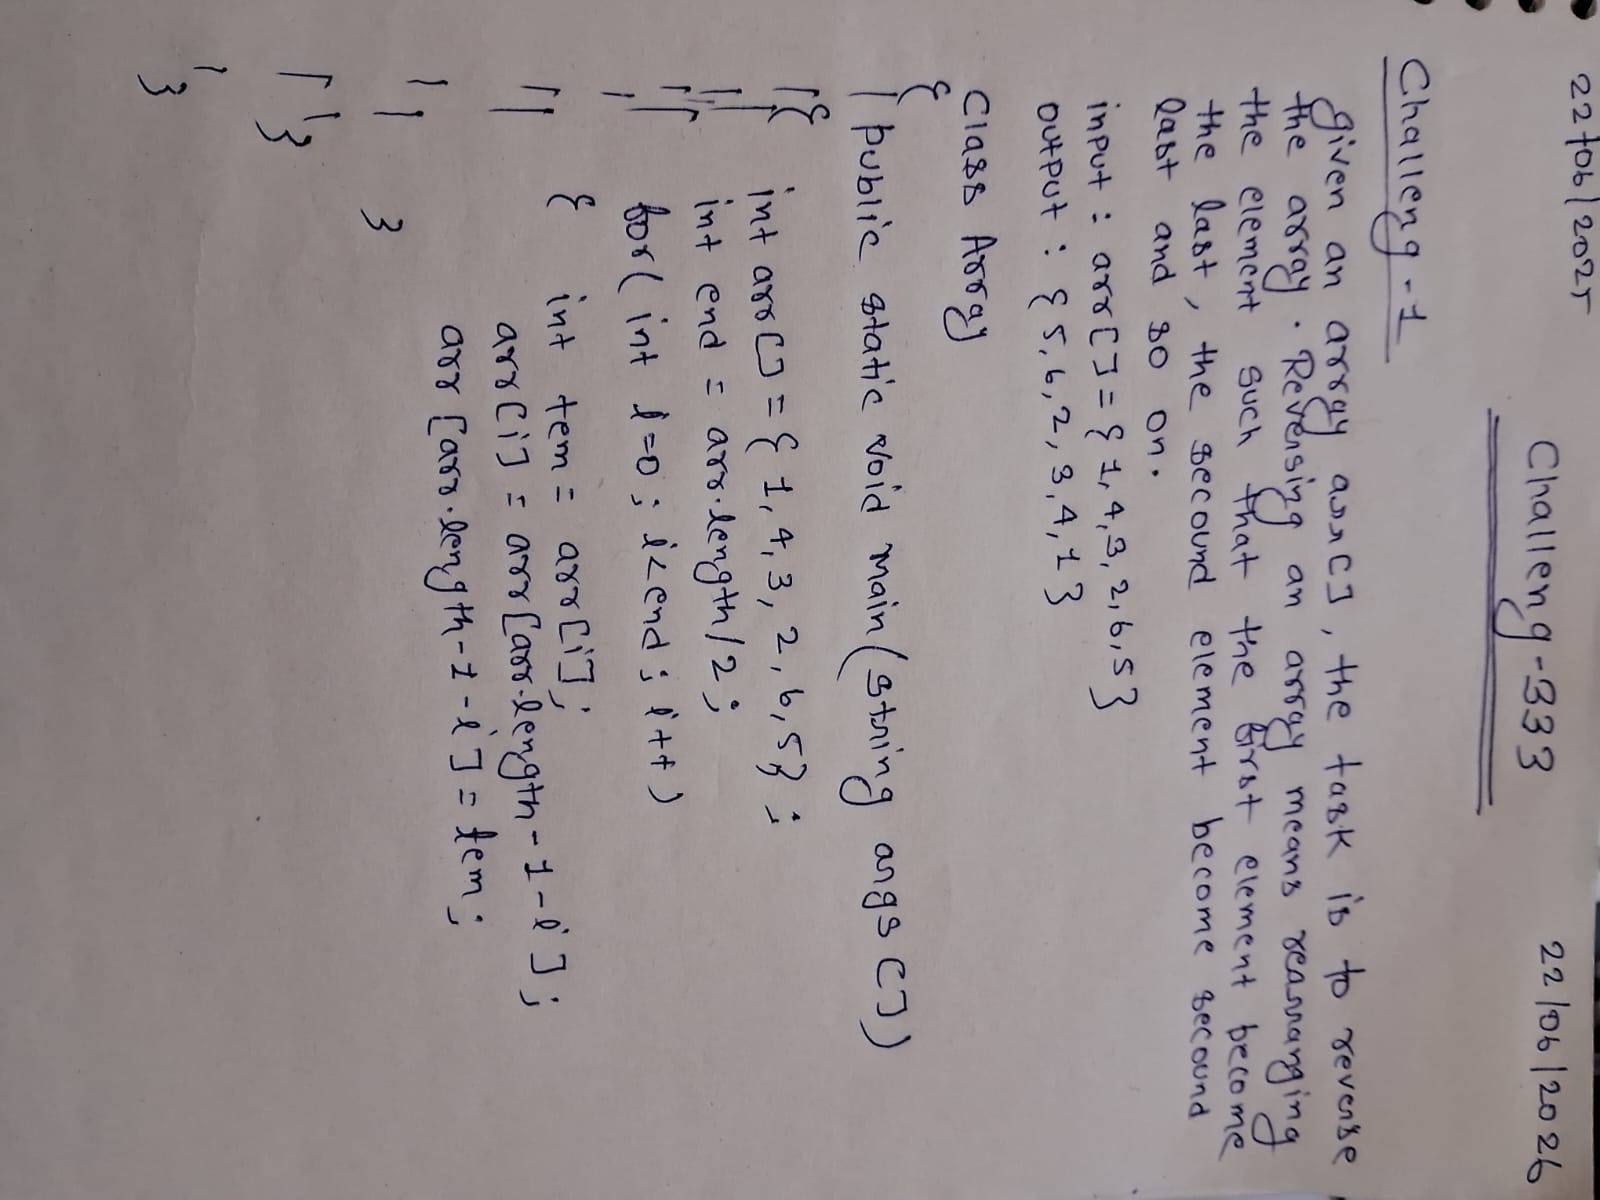 22/06/2025
Challeng-333
22/06/2026
Challeng-1
given an array arr[], the task is to reverse
the array. Reversing an array means rearranging
the element such that the first element become
the last, the secound element become secound
last and so on.
input : arr[] = { 1, 4, 3, 2, 6, 5}
output : { 5, 6, 2, 3, 4, 1 }
Class Array
{
public static void main (string args [])
{
int arr [] = { 1, 4, 3, 2, 6, 5} ;
int end = arr.length/2 ;
for( int i=0 ; i<end ; i++ )
{ int tem = arr[i];
arr[i] = arr[arr.length-1-i];
arr[arr.length-1-i] = tem;
}
}
}